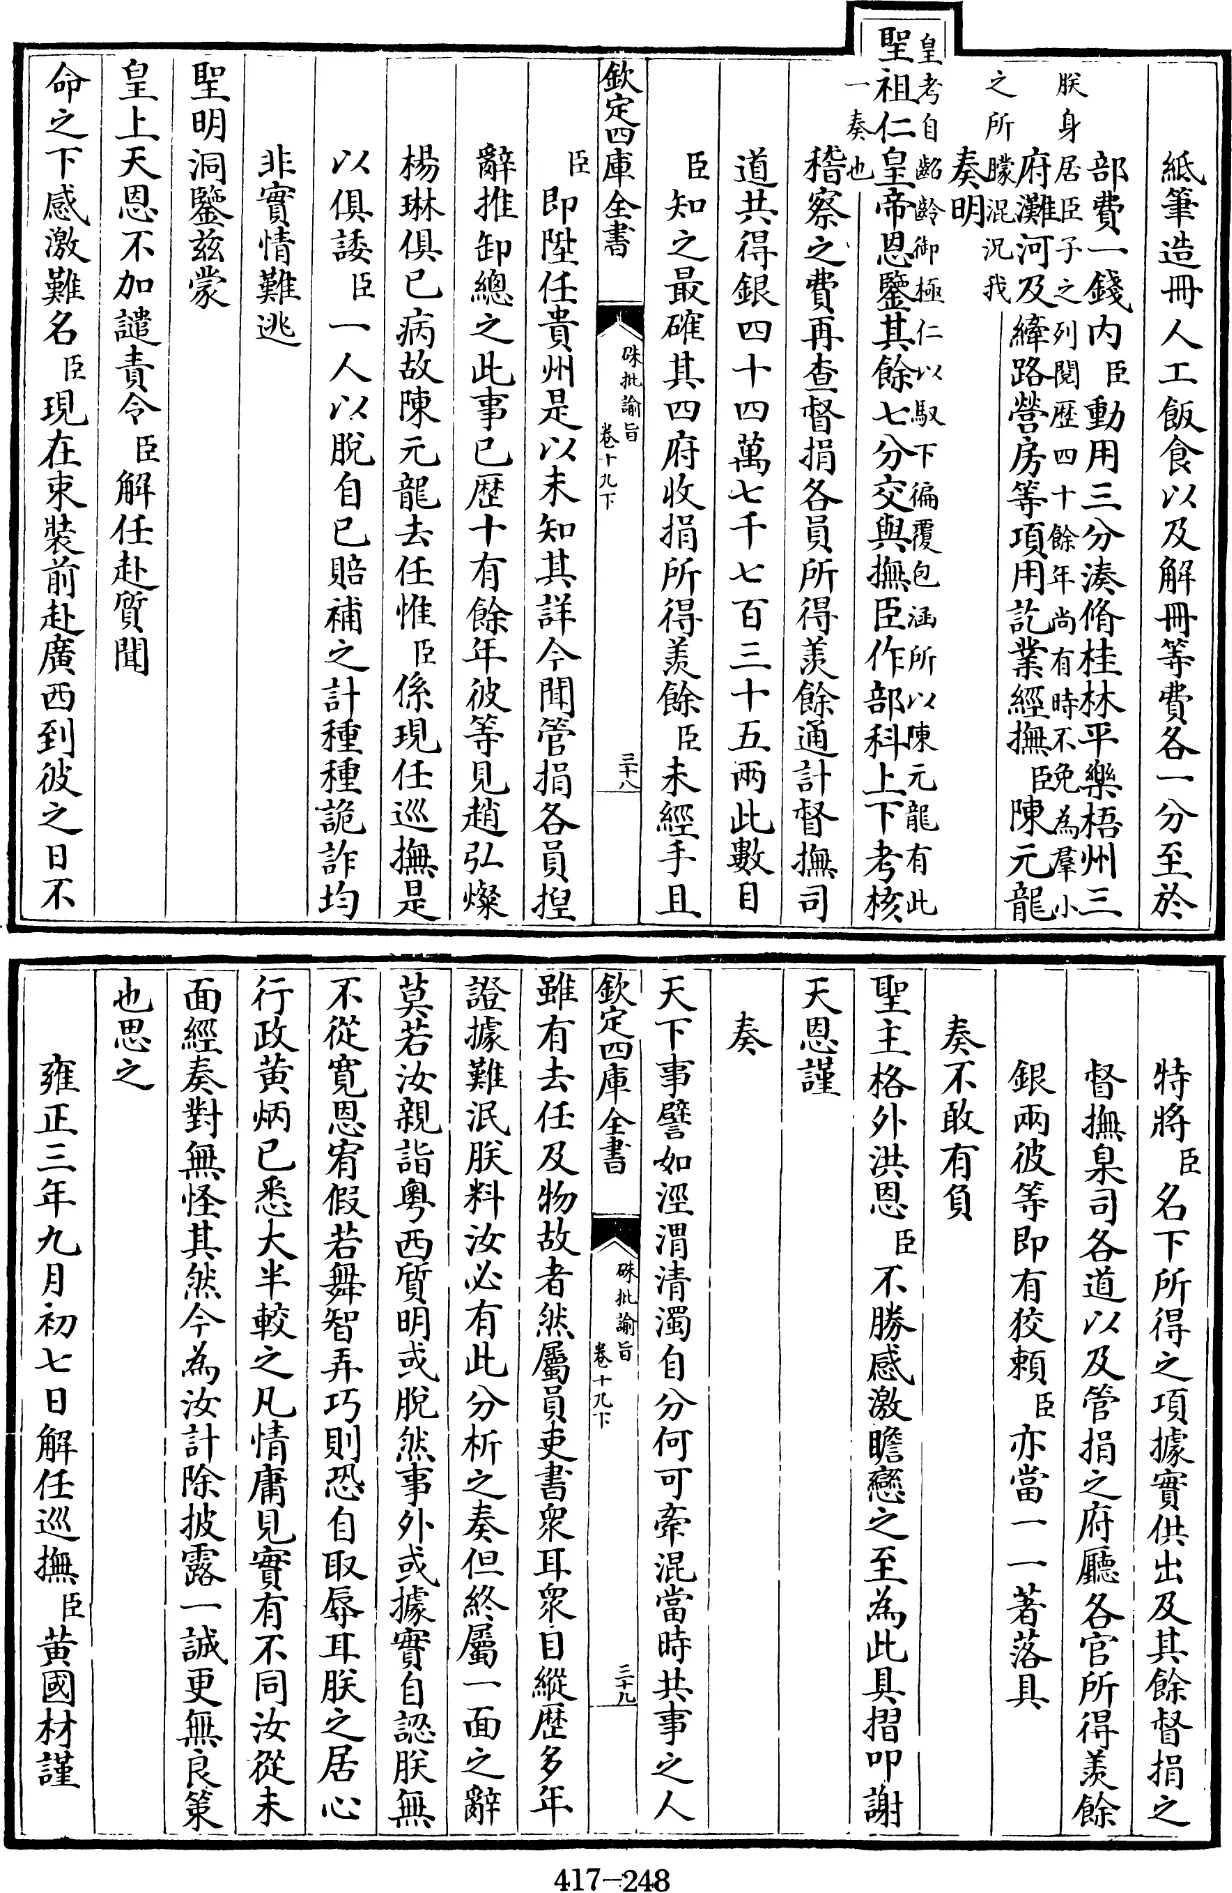 紙筆造冊人工飯食以及解冊等費各一分至於
部費一錢内臣動用三分湊脩桂林平樂梧州三
朕身居臣子之列閱歷四十餘年尚有時不免為羣小
府灘河及縴路營房等項用訖業經撫臣陳元龍
之所朦混況我
奏明
皇考自齠齡御極仁以馭下徧覆包涵所以陳元龍有此
聖祖仁皇帝恩鑒其餘七分交與撫臣作部科上下考核
一奏也
稽察之費再查督捐各員所得羨餘通計督撫司
道共得銀四十四萬七千七百三十五兩此數目
臣知之最確其四府收捐所得羨餘臣未經手且
欽定四庫全書
硃批諭旨
卷十九下
三十八
臣即陞任貴州是以未知其詳今聞管捐各員揑
辭推卸總之此事已歷十有餘年彼等見趙弘燦
楊琳俱已病故陳元龍去任惟臣係現任巡撫是
以俱諉臣一人以脫自已賠補之計種種詭詐均
非實情難逃
聖明洞鑒茲蒙
皇上天恩不加譴責令臣解任赴質聞
命之下感激難名臣現在束裝前赴廣西到彼之日不
特將臣名下所得之項據實供出及其餘督捐之
督撫臬司各道以及管捐之府廳各官所得羨餘
銀兩彼等即有狡賴臣亦當一一著落具
奏不敢有負
聖主格外洪恩臣不勝感激瞻戀之至為此具摺叩謝
天恩謹
奏
天下事譬如涇渭清濁自分何可牽混當時共事之人
欽定四庫全書
硃批諭旨
卷十九下
三十九
雖有去任及物故者然屬員吏書衆耳衆目縱歷多年
證據難泯朕料汝必有此分析之奏但終屬一面之辭
莫若汝親詣粤西質明或脫然事外或據實自認朕無
不從寛恩宥假若舞智弄巧則恐自取辱耳朕之居心
行政黄炳已悉大半較之凡情庸見實有不同汝從未
面經奏對無怪其然今為汝計除披露一誠更無良策
也思之
雍正三年九月初七日解任巡撫臣黄國材謹
417-248